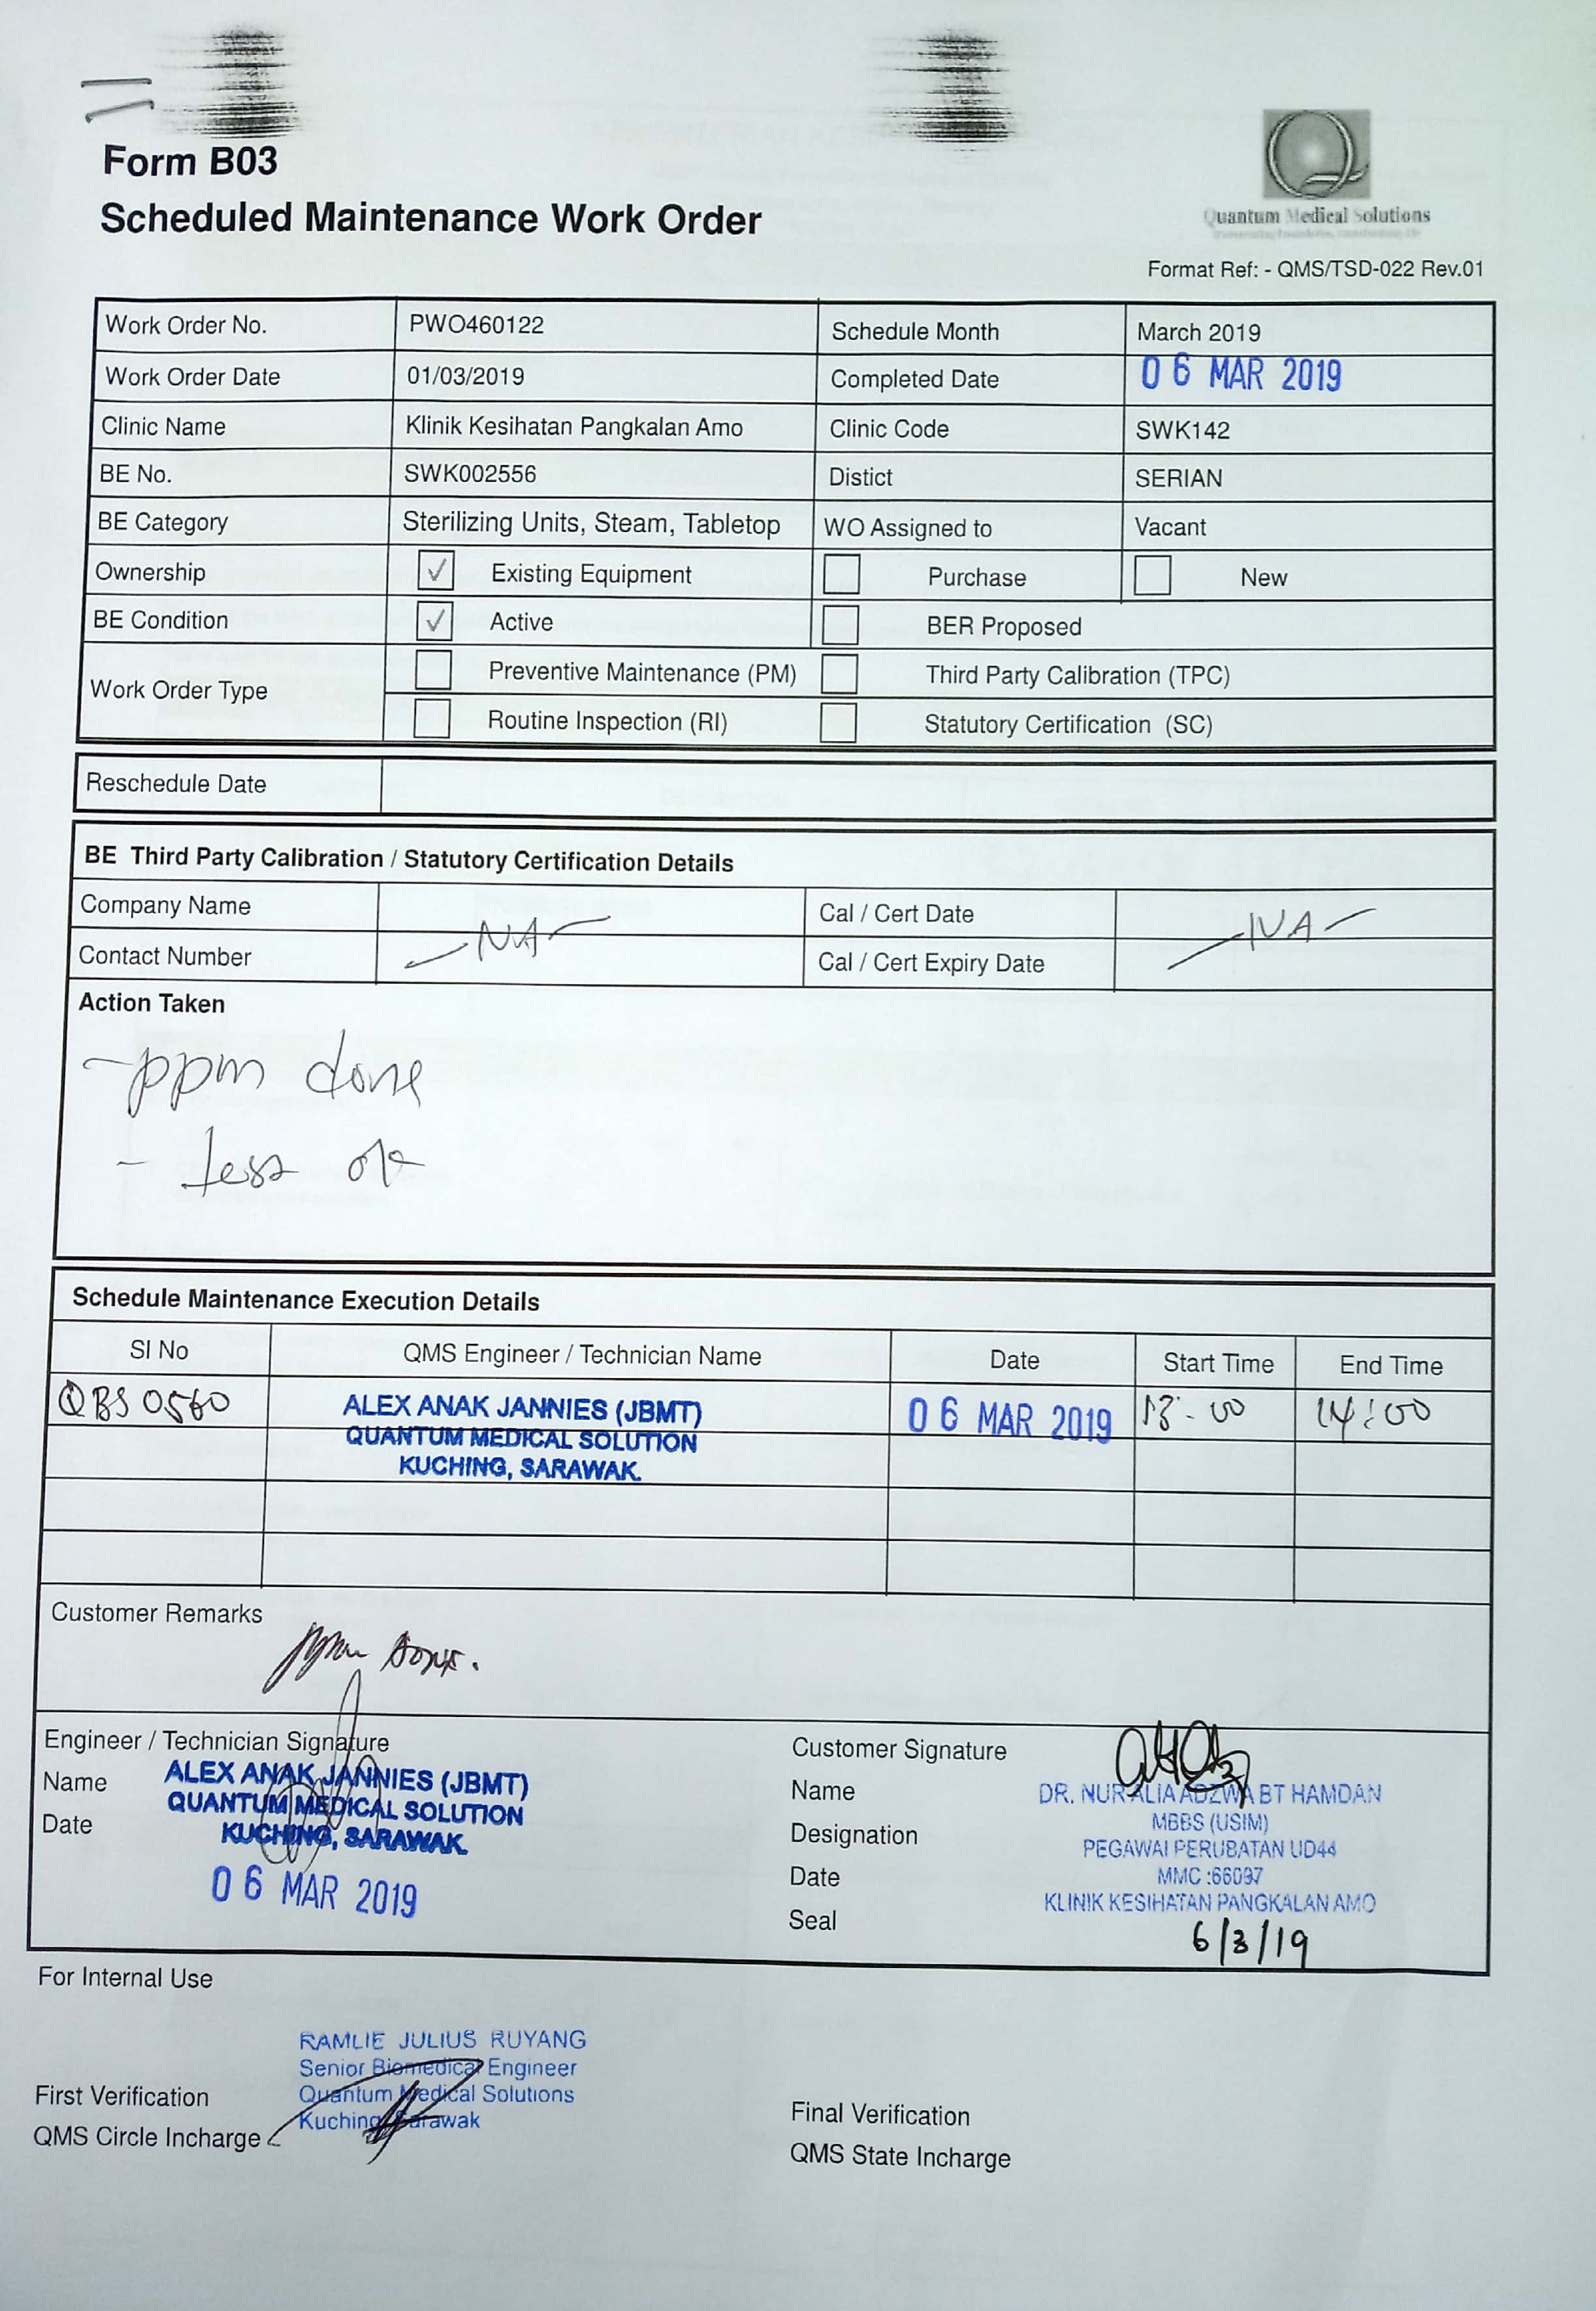 Form B03
Scheduled Maintenance Work Order
Quantum Medical Solutions
Format Ref: - QMS/TSD-022 Rev.01
Work Order No. PWO460122 Schedule Month March 2019
Work Order Date 01/03/2019 Completed Date 06 MAR 2019
Clinic Name Klinik Kesihatan Pangkalan Amo Clinic Code SWK142
BE No. SWK002556 Distict SERIAN
BE Category Sterilizing Units, Steam, Tabletop WO Assigned to Vacant
Ownership ✓ Existing Equipment Purchase New
BE Condition ✓ Active BER Proposed
Work Order Type
Preventive Maintenance (PM) Third Party Calibration (TPC)
Routine Inspection (RI) Statutory Certification (SC)
Reschedule Date
BE Third Party Calibration / Statutory Certification Details
Company Name Cal / Cert Date
NA NA
Contact Number Cal / Cert Expiry Date
Action Taken
- ppm done
- ok
Schedule Maintenance Execution Details
SI No QMS Engineer / Technician Name Date Start Time End Time
QBS 0560 ALEX ANAK JANNIES (JBMT) 06 MAR 2019 13:00 14:00
QUANTUM MEDICAL SOLUTION
KUCHING, SARAWAK.
Customer Remarks
ppm done.
Engineer / Technician Signature
Name ALEX ANAK JANNIES (JBMT)
QUANTUM MEDICAL SOLUTION
Date KUCHING, SARAWAK.
06 MAR 2019
Customer Signature
Name DR. NUR ALIA ADZWA BT HAMDAN
MBBS (USIM)
Designation PEGAWAI PERUBATAN UD44
Date MMC :66097
Seal KLINIK KESIHATAN PANGKALAN AMO
6/3/19
For Internal Use
RAMLIE JULIUS RUYANG
Senior Biomedical Engineer
First Verification Quantum Medical Solutions
QMS Circle Incharge Kuching, Sarawak
Final Verification
QMS State Incharge